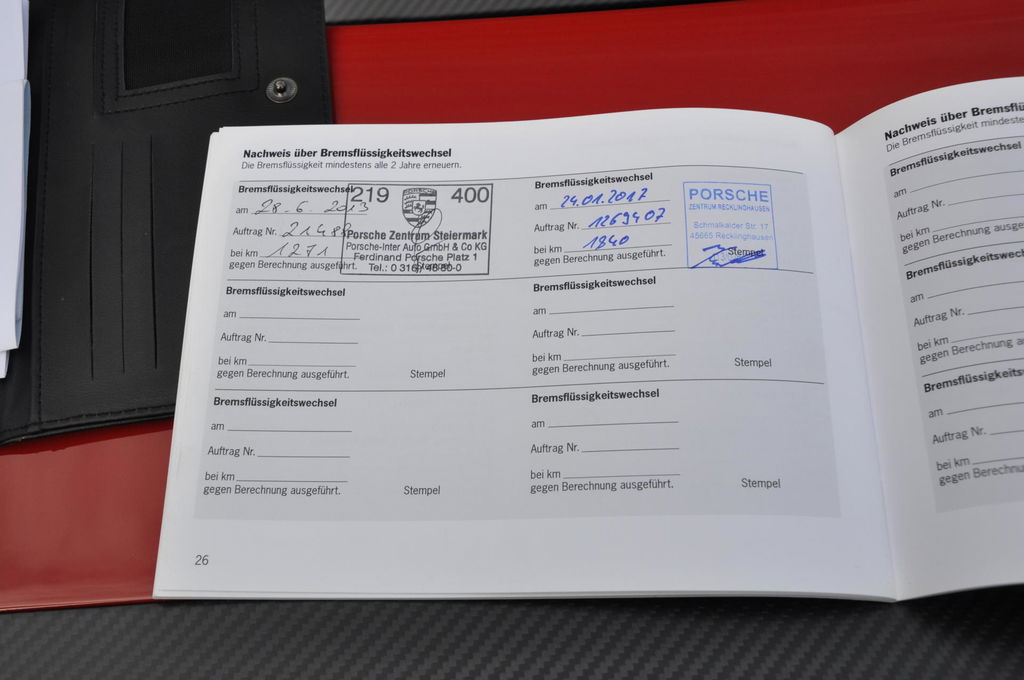 Nachweis über Bremsflüssigkeitswechsel
Die Bremsflüssigkeit mindestens alle 2 Jahre erneuern.
Bremsflüssigkeitswechsel
am 28.6.2013
Auftrag Nr.
bei km 1271
gegen Berechnung ausgeführt.
219 400
Porsche Zentrum Steiermark
Porsche-Inter Auto GmbH & Co KG
Ferdinand Porsche Platz 1
Tel.: 0 316 / 46 80-0
Stempel
Bremsflüssigkeitswechsel
am 24.01.2017
Auftrag Nr. 1269407
bei km 1940
gegen Berechnung ausgeführt.
PORSCHE
ZENTRUM RECKLINGHAUSEN
Schmalkalder Str. 17
45665 Recklinghausen
Stempel
Bremsflüssigkeitswechsel
am
Auftrag Nr.
bei km
gegen Berechnung ausgeführt. Stempel
Bremsflüssigkeitswechsel
am
Auftrag Nr.
bei km
gegen Berechnung ausgeführt. Stempel
Bremsflüssigkeitswechsel
am
Auftrag Nr.
bei km
gegen Berechnung ausgeführt. Stempel
Bremsflüssigkeitswechsel
am
Auftrag Nr.
bei km
gegen Berechnung ausgeführt. Stempel
26
Nachweis über Bremsflü
Die Bremsflüssigkeit mindeste
Bremsflüssigkeitswechsel
am
Auftrag Nr.
bei km
gegen Berechnung ausge
Bremsflüssigkeitswech
am
Auftrag Nr.
bei km
gegen Berechnung a
Bremsflüssigkeits
am
Auftrag Nr.
bei km
gegen Berechn